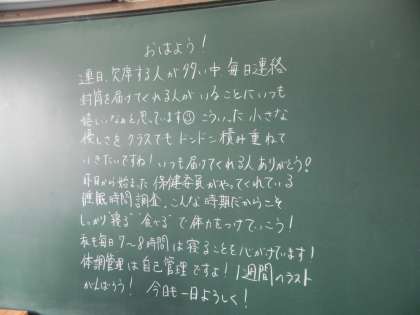 おはよう!
連日、欠席する人が多い中、毎日連絡
封筒を届けてくれる人がいることにいつも
嬉しいなぁと思っています☺ こういった小さな
優しさをクラスでもドンドン積み重ねて
いきたいですね!いつも届けてくれる人ありがとう!
昨日から始まった保健委員がやってくれている
睡眠時間調査。こんな時期だからこそ
しっかり"寝る""食べる"で体力をつけていこう!
私も毎日7〜8時間は寝ることを心がけています!
体調管理は自己管理ですよ!1週間のラスト
がんばろう! 今日も一日よろしく!